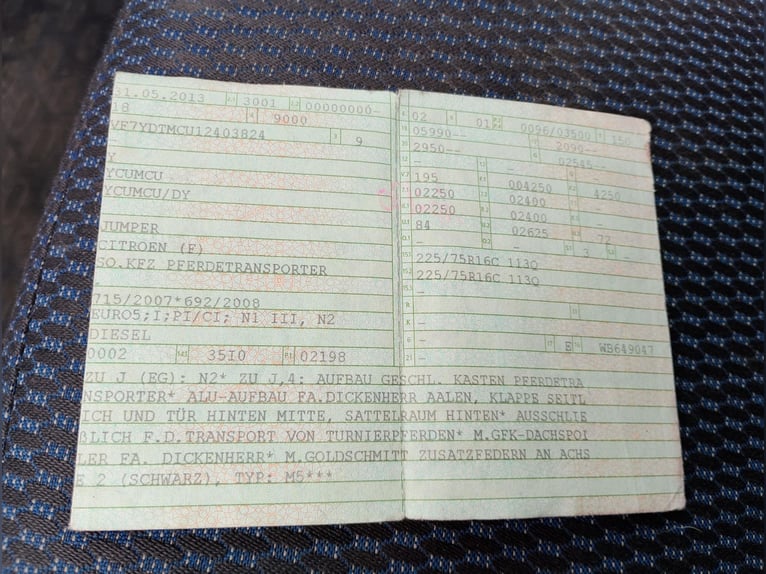 31.05.2013 2.1 3001 2.2 00000000-
18 4 9000
VF7YDTMCU12403824 3 9
-
Y
YCUMCU
YCUMCU/DY
-
JUMPER
CITROEN (F)
SO.KFZ PFERDETRANSPORTER
-
715/2007*692/2008
EURO5;I;PI/CI; N1 III, N2
DIESEL
0002 3510 02198
02 01 0096/03500 150
05990-- 2090--
2950-- 02545--
- - -
195 004250 4250
02250 02400
02250 02400 -
84 02625 72
- - 3 -
225/75R16C 113Q
225/75R16C 113Q
-
R - 11
K -
6 - 17 E 16 WB649047
21 -
ZU J (EG): N2* ZU J,4: AUFBAU GESCHL. KASTEN PFERDETRA
NSPORTER* ALU-AUFBAU FA.DICKENHERR AALEN, KLAPPE SEITL
ICH UND TÜR HINTEN MITTE, SATTELRAUM HINTEN* AUSSCHLIE
ßLICH F.D.TRANSPORT VON TURNIERPFERDEN* M.GFK-DACHSPOI
LER FA. DICKENHERR* M.GOLDSCHMITT ZUSATZFEDERN AN ACHS
E 2 (SCHWARZ), TYP: M5***